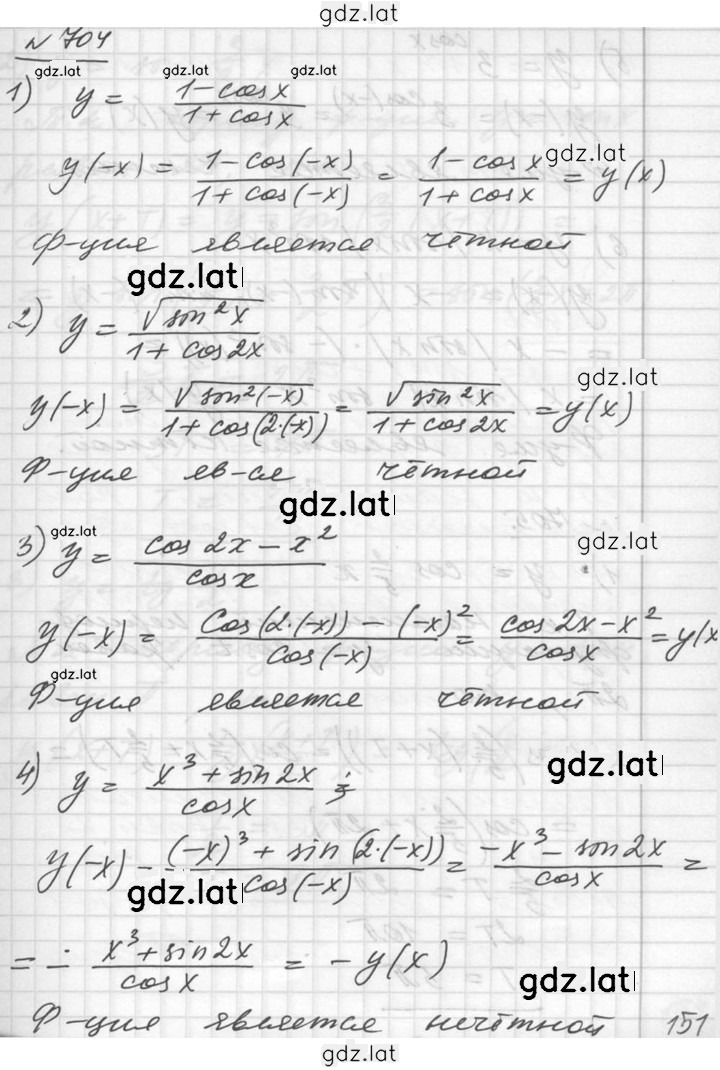 gdz.lat
№ 704
gdz.lat gdz.lat gdz.lat
1) y = (1-cosx)/(1+cosx)
gdz.lat
y(-x) = (1-cos(-x))/(1+cos(-x)) = (1-cosx)/(1+cosx) = y(x)
Ф-ция является чётной
gdz.lat
2) y = √(sin²x)/(1+cos2x)
gdz.lat
y(-x) = √(sin²(-x))/(1+cos(2·(-x))) = √(sin²x)/(1+cos2x) = y(x)
Ф-ция яв-ся чётной
gdz.lat
gdz.lat
gdz.lat
3) y = (cos2x-x²)/cosx
y(-x) = (Cos(2·(-x))-(-x)²)/cos(-x) = (cos2x-x²)/cosx = y(x
gdz.lat
Ф-ция является чётной
gdz.lat
4) y = (x³+sin2x)/cosx ;
y(-x) - ((-x)³+sin(2·(-x)))/cos(-x) = (-x³-sin2x)/cosx =
gdz.lat
= - (x³+sin2x)/cosx = -y(x)
gdz.lat
Ф-ция является нечётной 151
gdz.lat